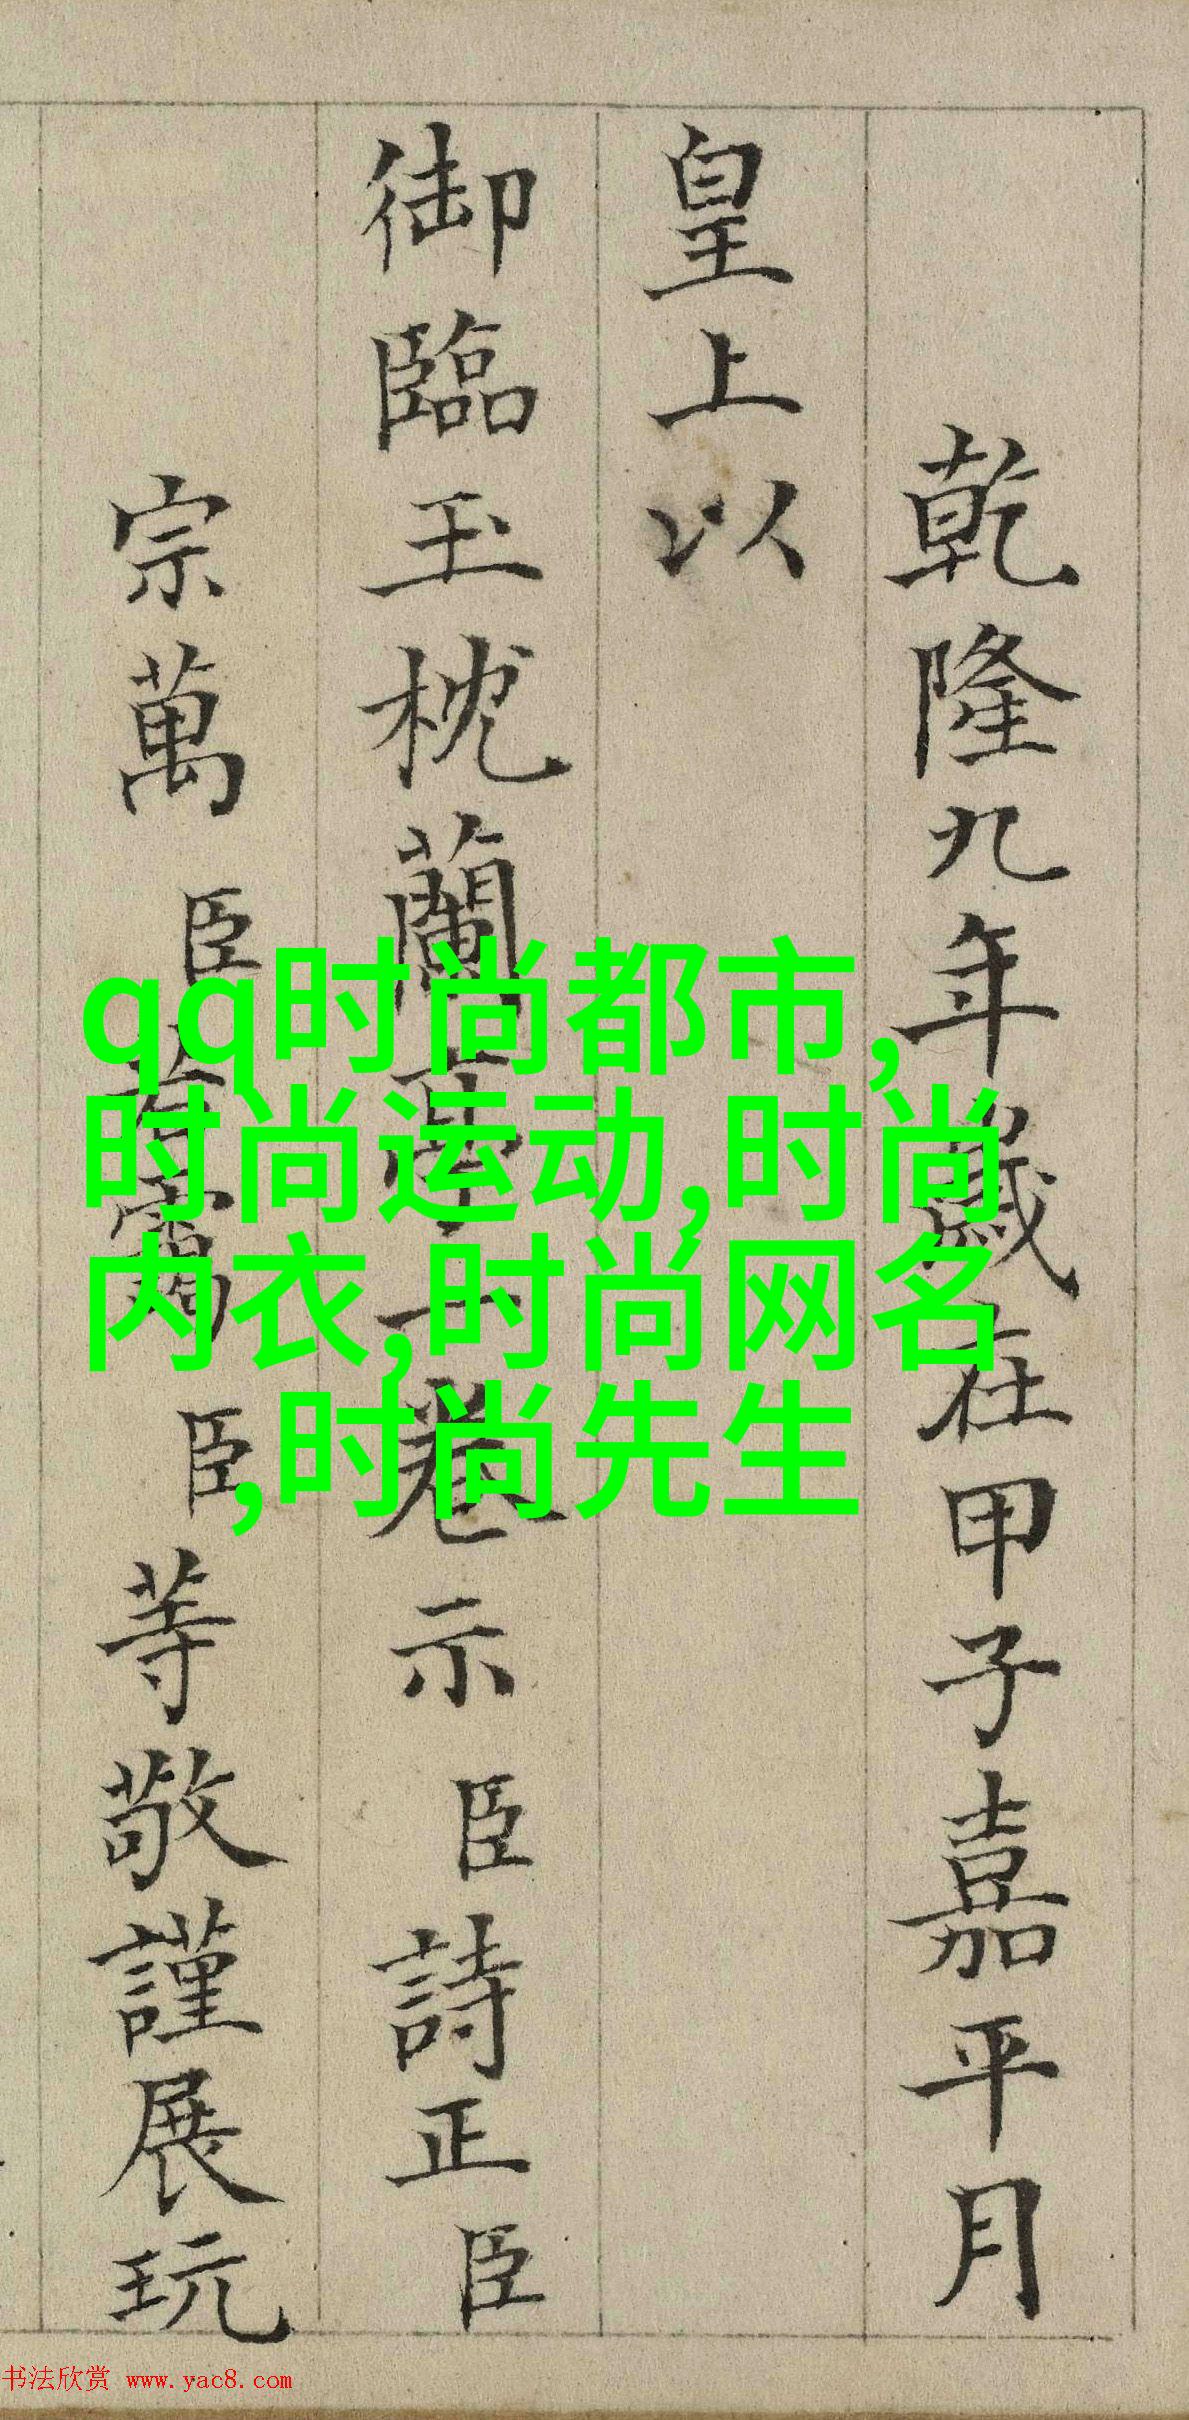 乾隆九年歲在甲子嘉平月
皇上以
御臨玉枕蘭亭一卷示臣詩正臣
宗萬臣若靄臣等敬謹展玩
qq时尚都市,
时尚运动,时尚
内衣,时尚网名
,时尚先生
书法欣赏 www.yac8.com